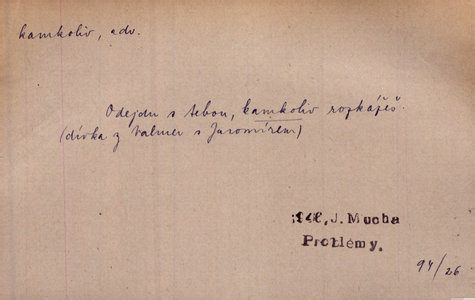 kamkoliv, adv.
Odejdu s tebou, kamkoliv rozkážeš.
(dívka z Valmer s Jaromírem)
1948, J. Mucha
Problémy.
94/26